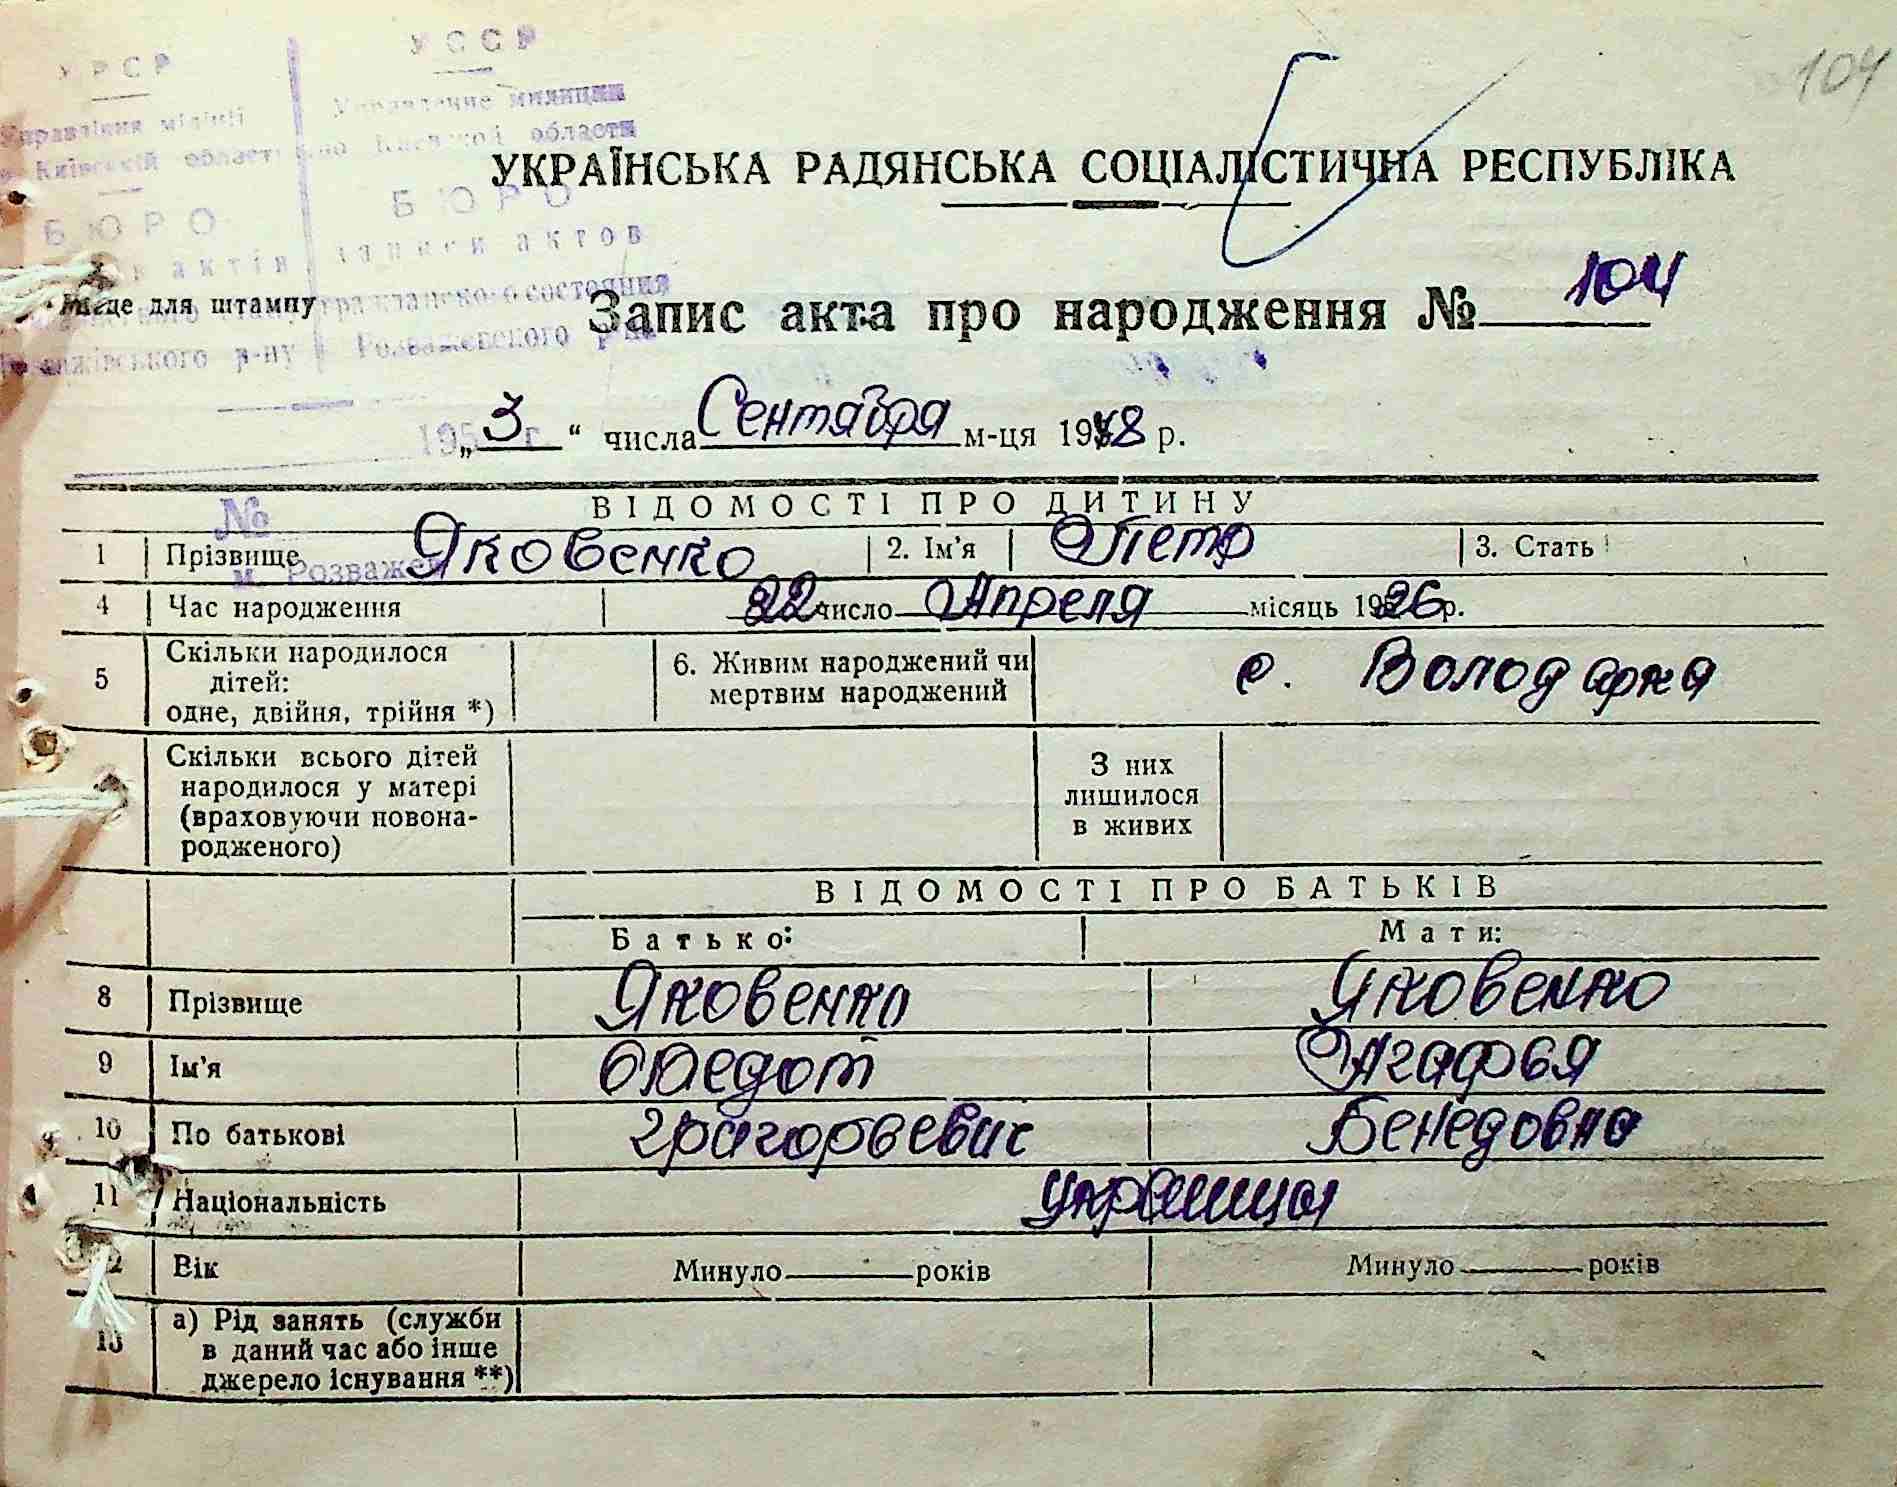 104
УРСР
УССР
Управління міліції
Управление милиции
Київській області
по Киевской области
УКРАЇНСЬКА РАДЯНСЬКА СОЦІАЛІСТИЧНА РЕСПУБЛІКА
БЮРО
БЮРО
актів
записи актов
Місце для штампу
гражданского состояния
Запис акта про народження № 104
р-ну
Розважевского р-на
195 г.
„3“ числа Сентября м-ця 1948 р.
ВІДОМОСТІ ПРО ДИТИНУ
№
1 Прізвище Яковенко 2. Ім'я Петр 3. Стать
м. Розважев
4 Час народження 22 число Апреля місяць 1926 р.
5 Скільки народилося дітей: одне, двійня, трійня *) 6. Живим народжений чи мертвим народжений с. Володарка
Скільки всього дітей народилося у матері (враховуючи новона-родженого) З них лишилося в живих
ВІДОМОСТІ ПРО БАТЬКІВ
Батько: Мати:
8 Прізвище Яковенко Яковенко
9 Ім'я Федот Агафья
10 По батькові Григорьевич Бенедовна
11 Національність украинцы
12 Вік Минуло років Минуло років
13 а) Рід занять (служби в даний час або інше джерело існування **)